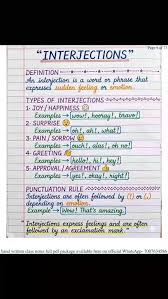 "INTERJECTIONS"
DEFINITION
An interjection is a word or phrase that
expresses sudden feeling or emotion.
TYPES OF INTERJECTIONS
1. JOY / HAPPINESS
Examples → wow!, hooray!, bravo!
2. SURPRISE
Examples → oh!, ah!, what!
3. PAIN / SORROW
Examples → ouch!, alas!, oh no!
4. GREETING
Examples → hello!, hi!, hey!
5. APPROVAL / AGREEMENT
Examples → yes!, okay!, right!
PUNCTUATION RULE
Interjections are often followed by (!) or (,)
depending on emotion.
Example → Wow! That's amazing.
Interjections express feelings and are often
followed by an exclamation mark.
hand written class notes full pdf package available here on official WhatsApp-